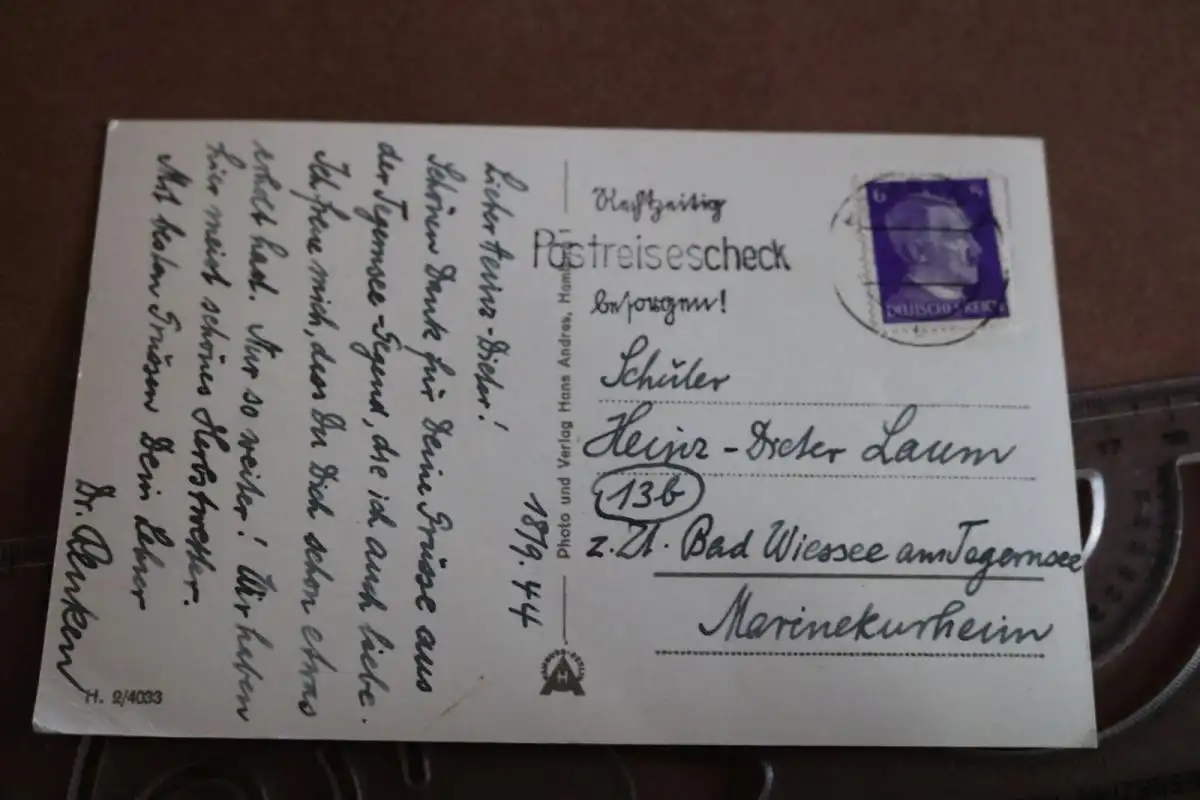 18/9.44
Lieber Heinz-Dieter!
Schönen Dank für Deine Grüsse aus
der Tegernsee-Gegend, die ich auch liebe.
Ich freue mich, dass Du Dich schon etwas
erholt hast. Nur so weiter! Wir haben
hier meist schönes Herbstwetter.
Mit besten Grüssen Dein Lehrer
Dr.
H. 2/4033
Photo und Verlag Hans Andres, Hamburg 1
Rechtzeitig
Postreisescheck
besorgen!
6 6
DEUTSCHES REICH
Schüler
Heinz-Dieter Laum
13b
z. Zt. Bad Wiessee am Tegernsee
Marinekurheim
H